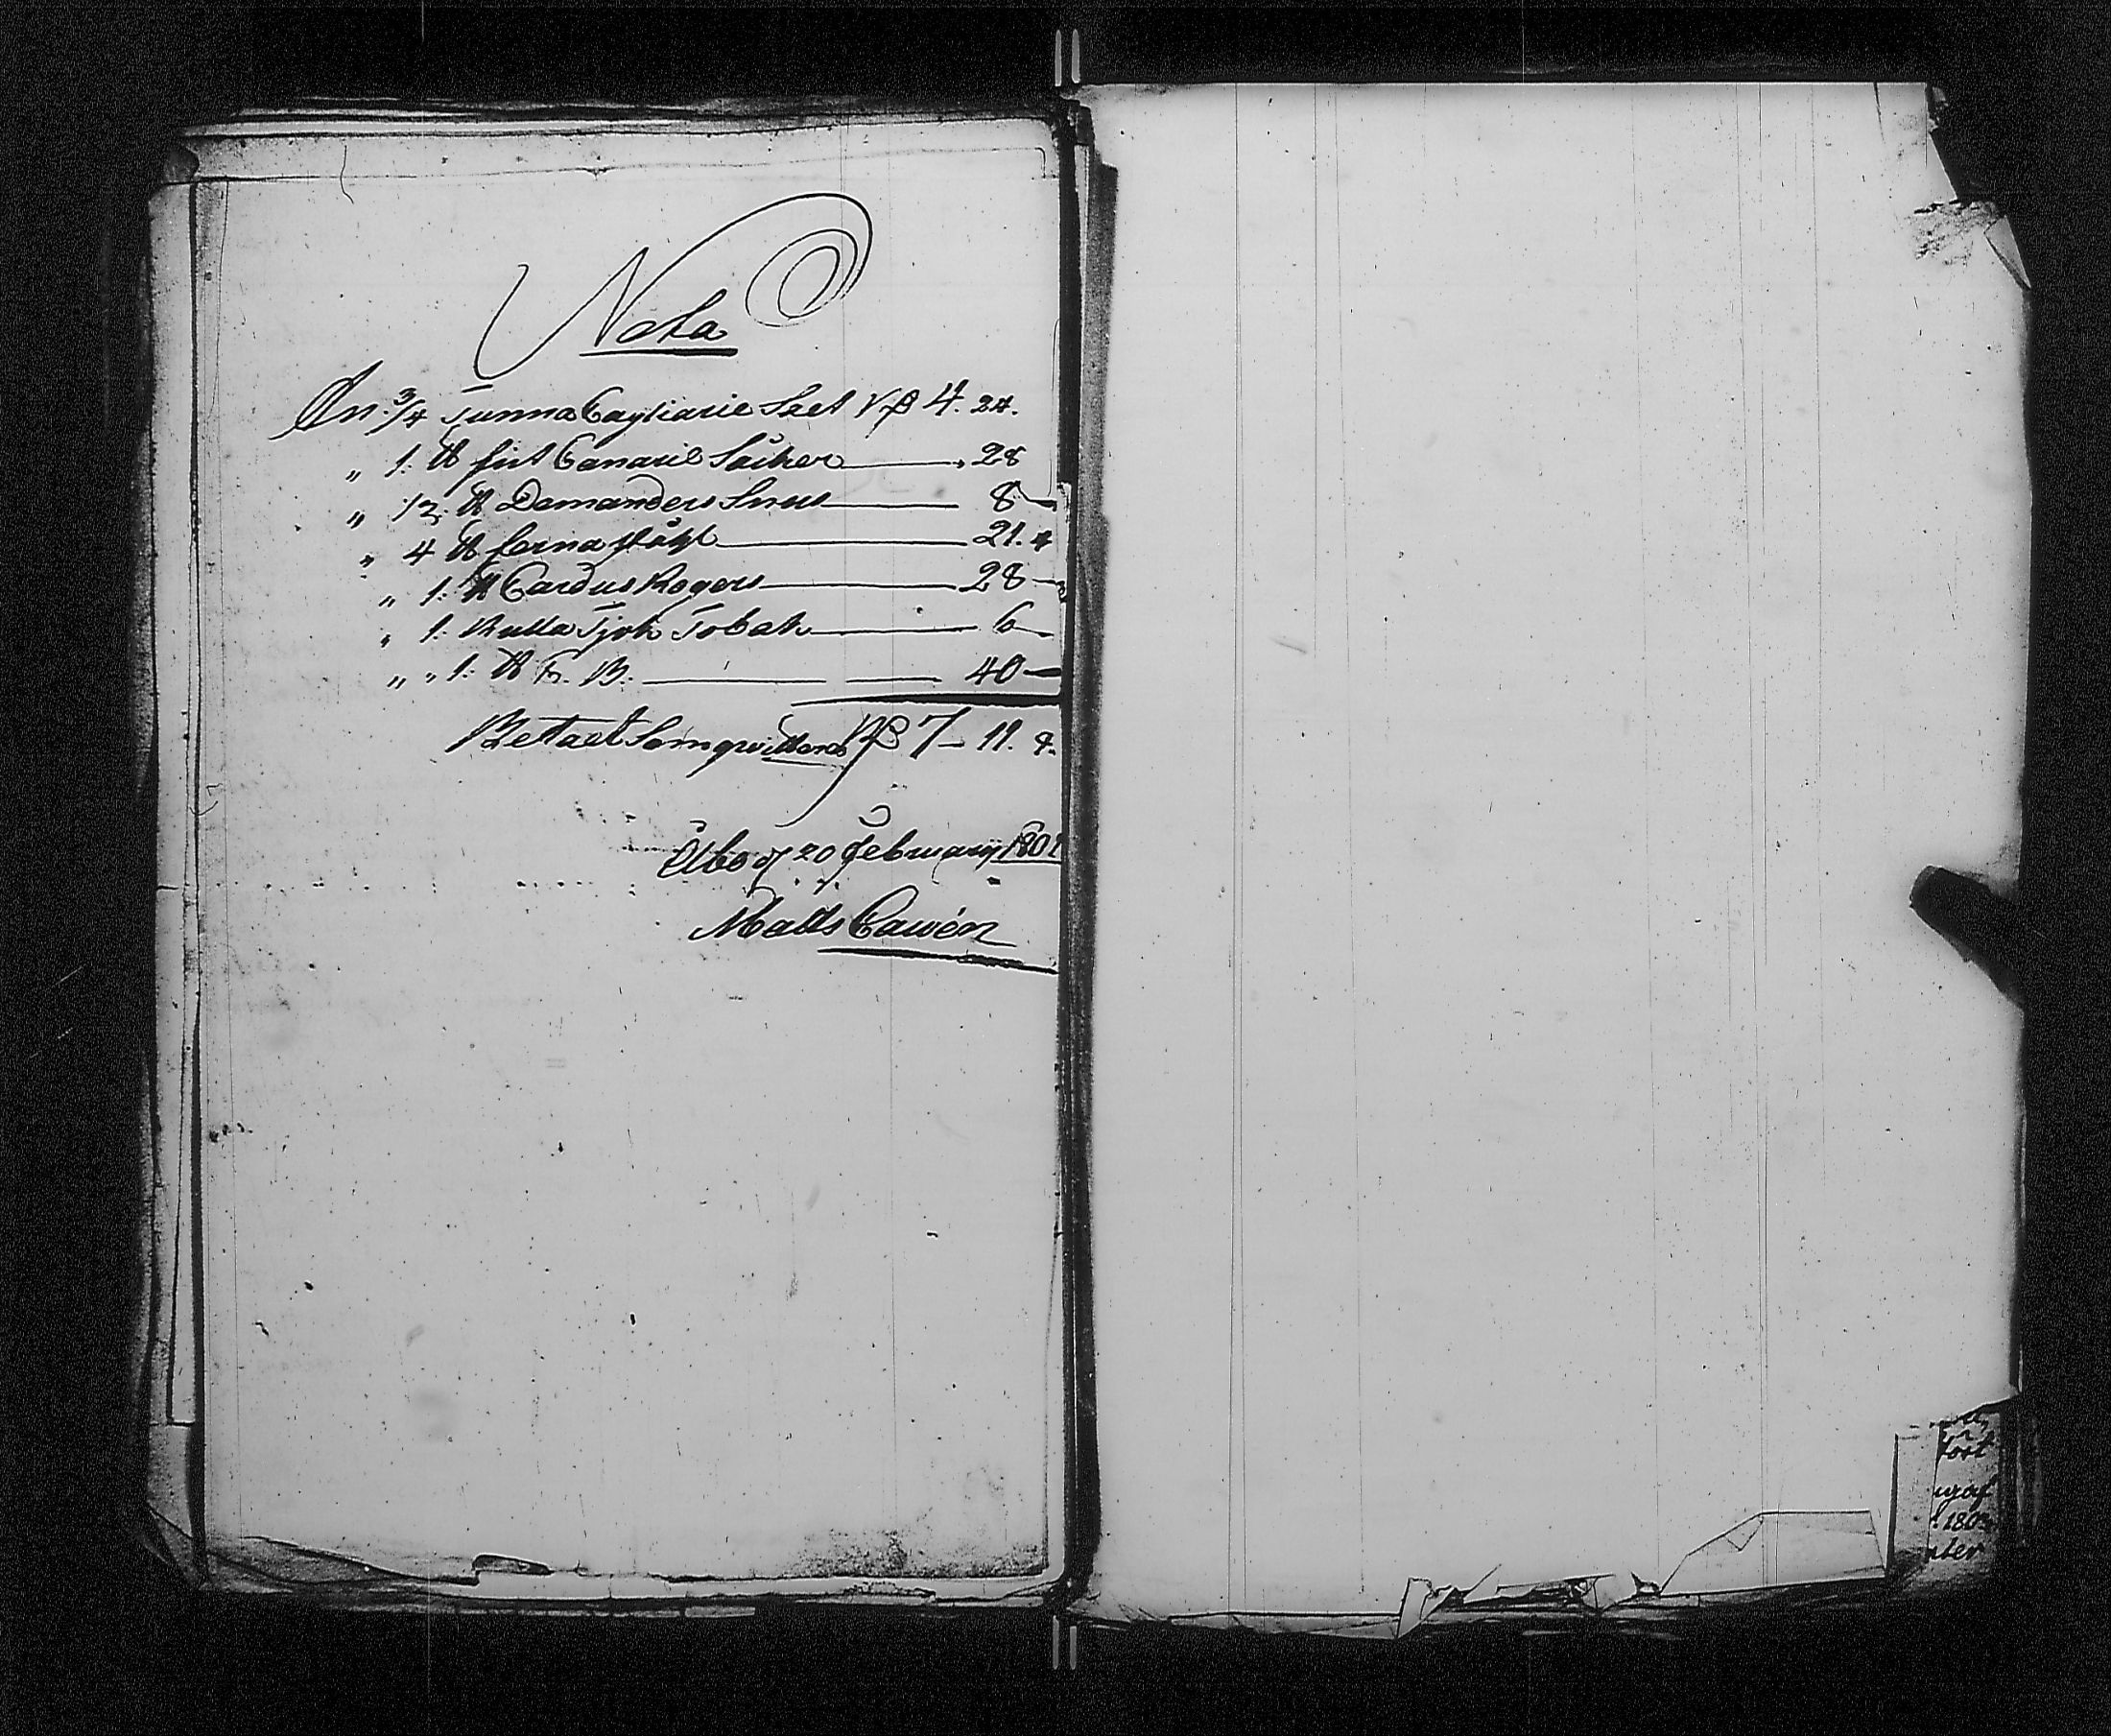 Nota
An. 3/4 Tunna Cagliarie Salt Rß 4. 24.
„ 1. ℔ fint Canarie Såcker — 28
„ 1/2 ℔ Demanders Snus — 8 —
„ 4 ℔ ferna stÃ¥hl — 21. 4
„ 1. ℔ Cardus Rogers — 28 —
„ 1. Rulla Tjok Tobak — 6 —
„ „ 1. ℔ K. B. — 40 —
Bettalt Som qvitteras Rß 7 — 11. 4.
Åbo d 20 February 1801
Matts Cawén
fört
ugaf
180
nter